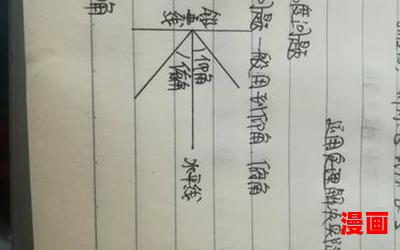 运用定理解决实际
度问题
问题一般用到仰角、俯角
铅垂线
仰角
俯角
水平线
角
漫画